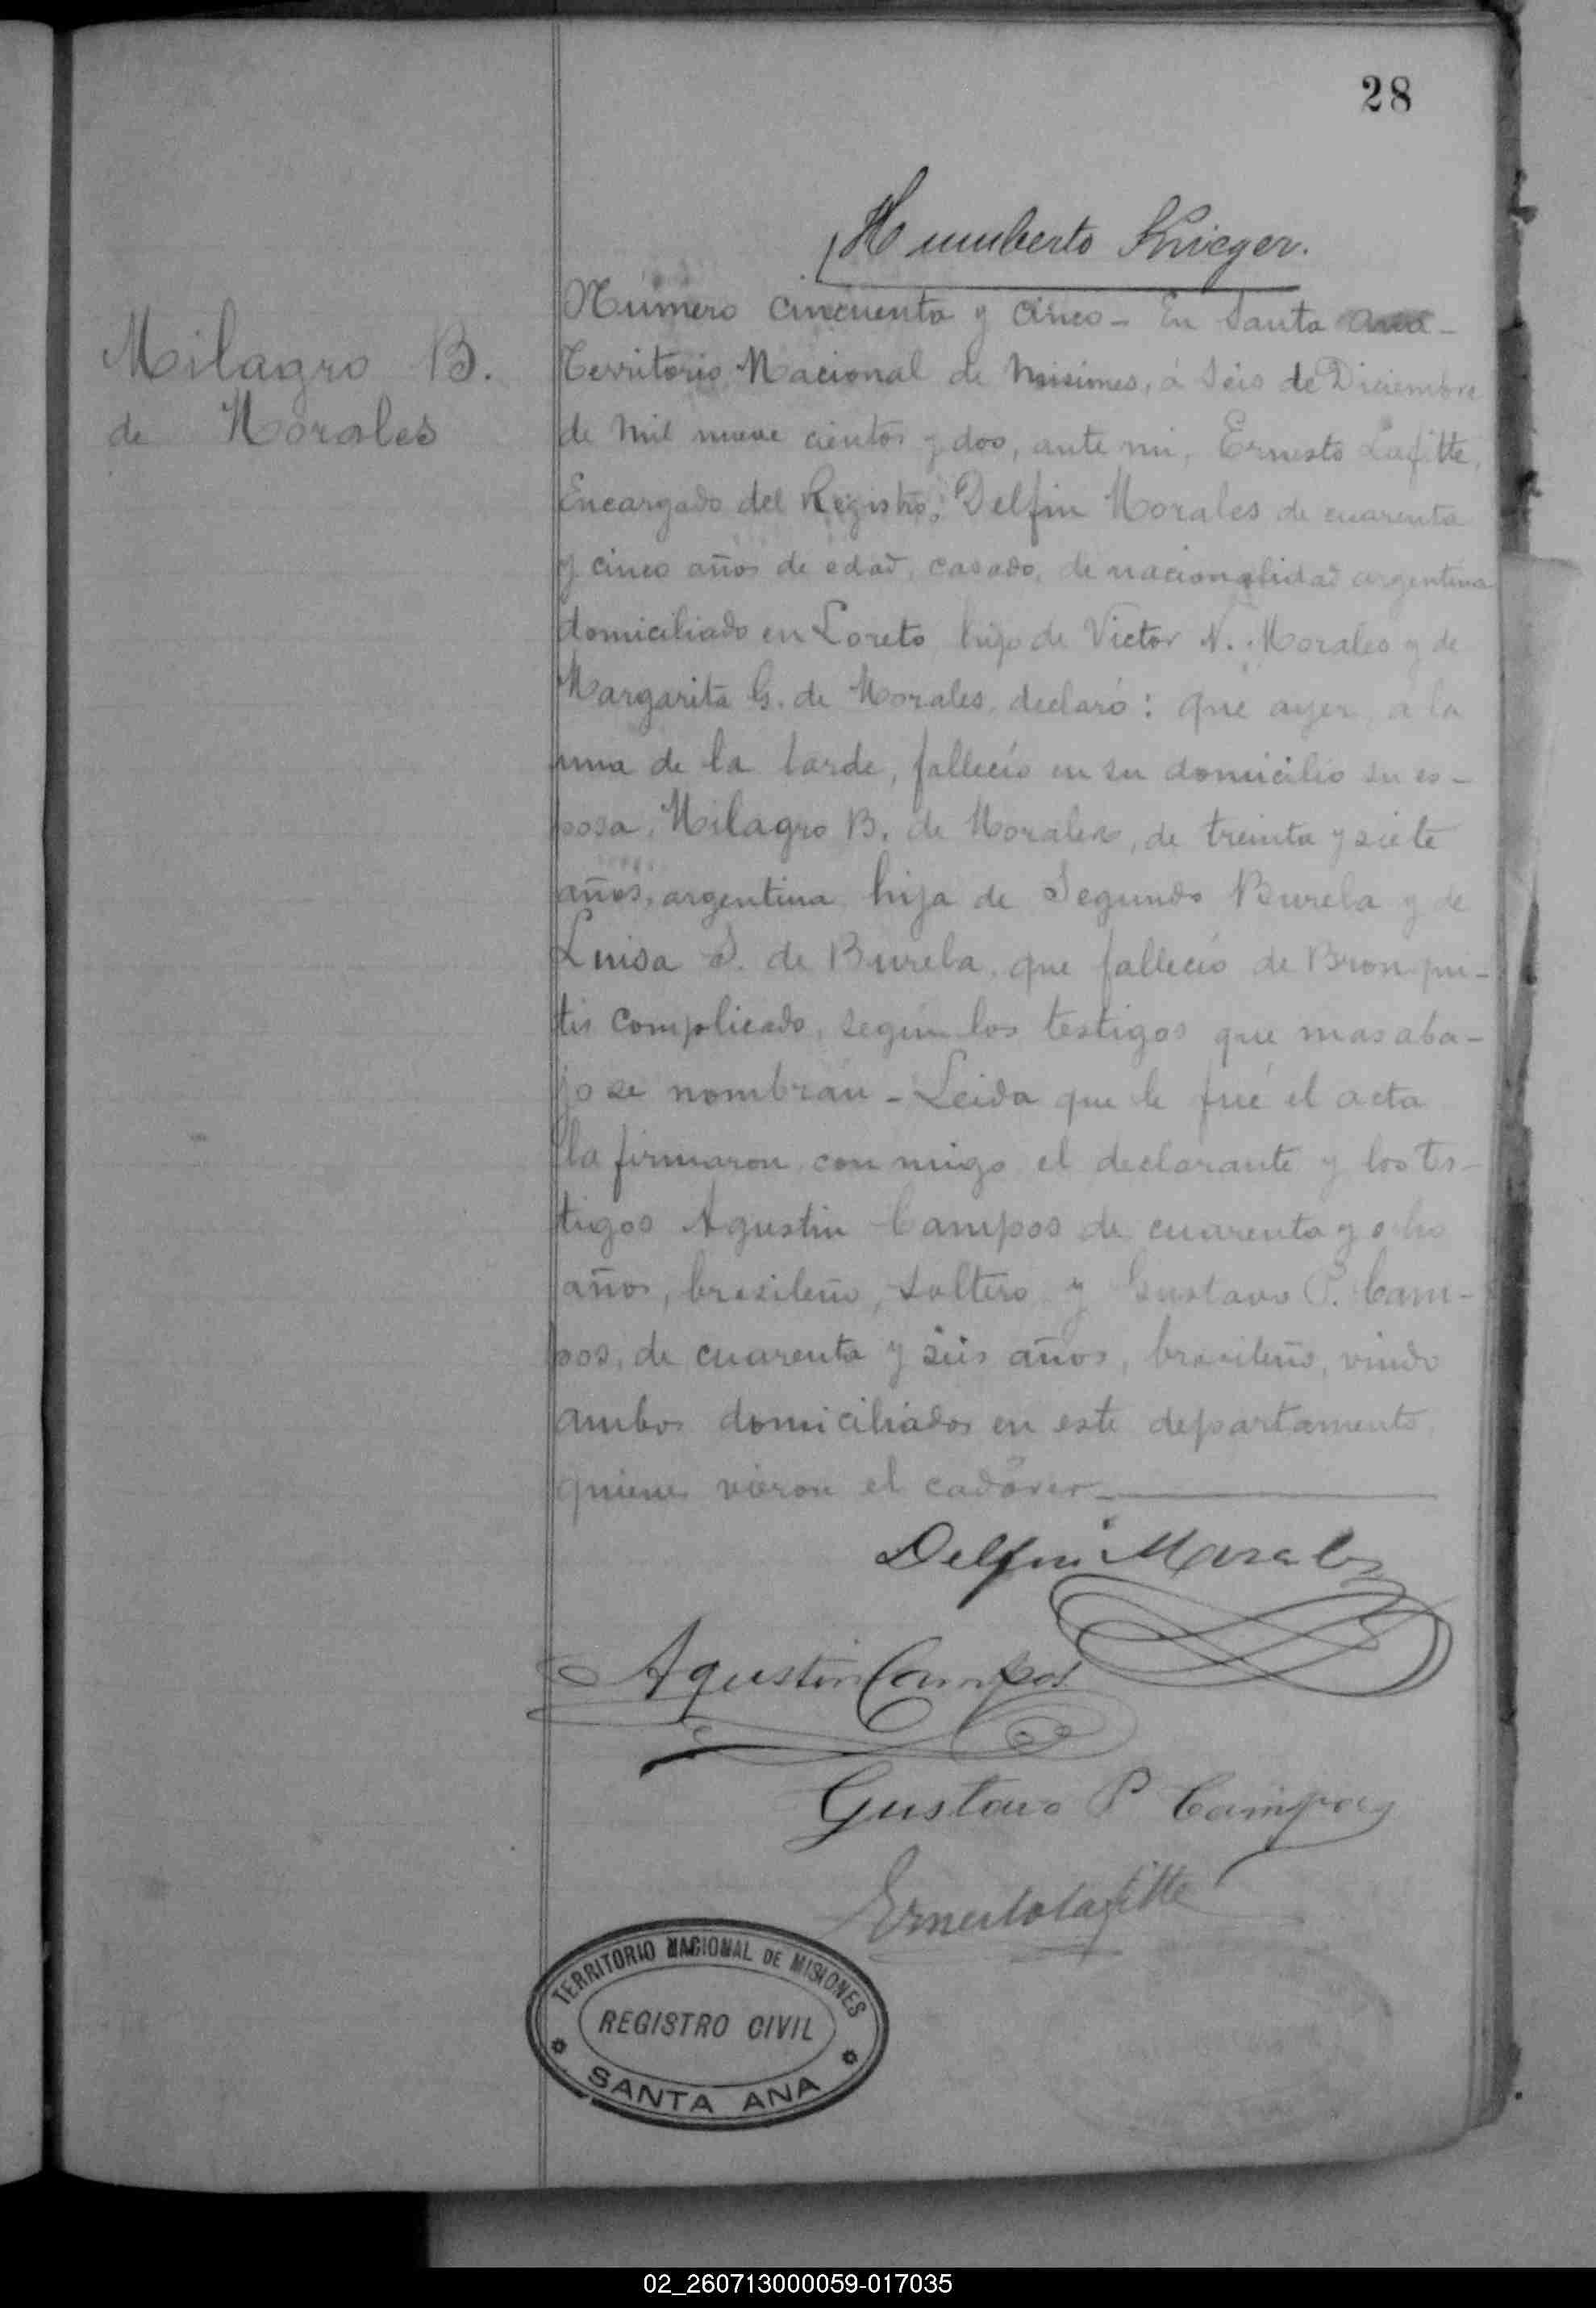 28
Humberto Krieger.
Milagro B.
de Morales
Número cincuenta y cinco - En Santa Ana -
Territorio Nacional de Misiones, á seis de Diciembre
de mil nueve cientos y dos, ante mi, Ernesto Lafitte,
Encargado del Registro, Delfin Morales de cuarenta
y cinco años de edad, casado, de nacionalidad argentina
domiciliado en Loreto, hijo de Victor N. Morales y de
Margarita G. de Morales, declaró: que ayer, a la
una de la tarde, falleció en su domicilio su es-
posa, Milagro B. de Morales, de treinta y siete
años, argentina, hija de Segundo Burela y de
Luisa S. de Burela, que falleció de Bronqui-
tis complicado, según los testigos que mas aba-
jo se nombran - Leida que le fué el acta
la firmaron con migo el declarante y los tes-
tigos Agustin Campos de cuarenta y ocho
años, brasileño, soltero y Gustavo P. Cam-
pos, de cuarenta y seis años, brasileño, viudo
ambos domiciliados en este departamento,
quienes vieron el cadáver
Delfin Morales
Agustin Campos
Gustavo P Campos
Ernesto Lafitte
TERRITORIO NACIONAL DE MISIONES
REGISTRO CIVIL
SANTA ANA
02_260713000059-017035